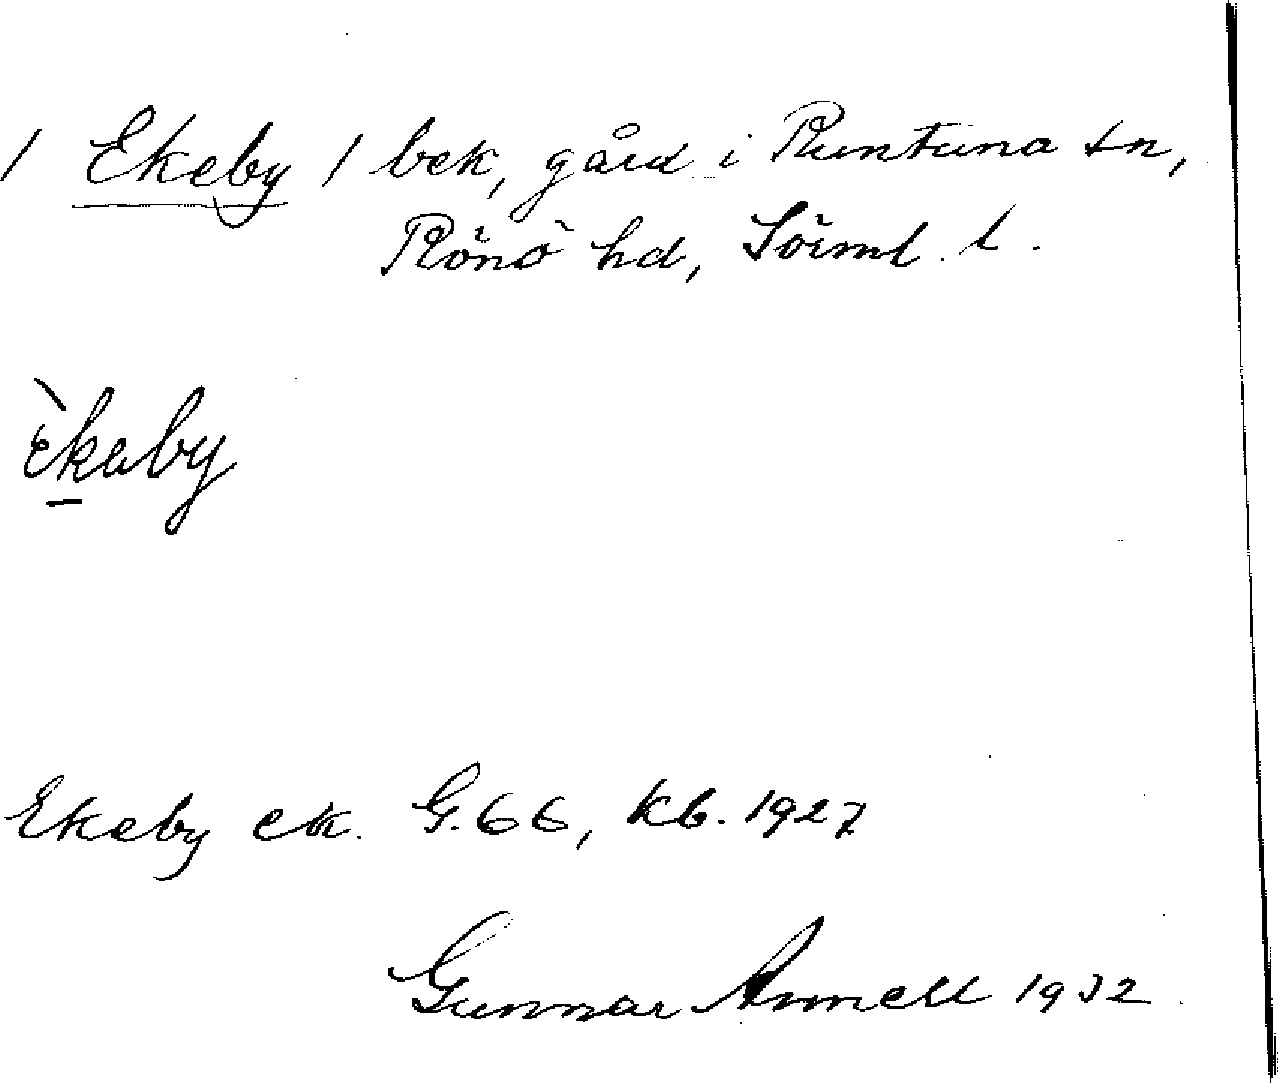 / Ekeby / bek, gård i Runtuna sn,
Rönö hd, Sörml. l.
èkaby
Ekeby ek. G. 66, Kb. 1927
Gunnar Annell 1932